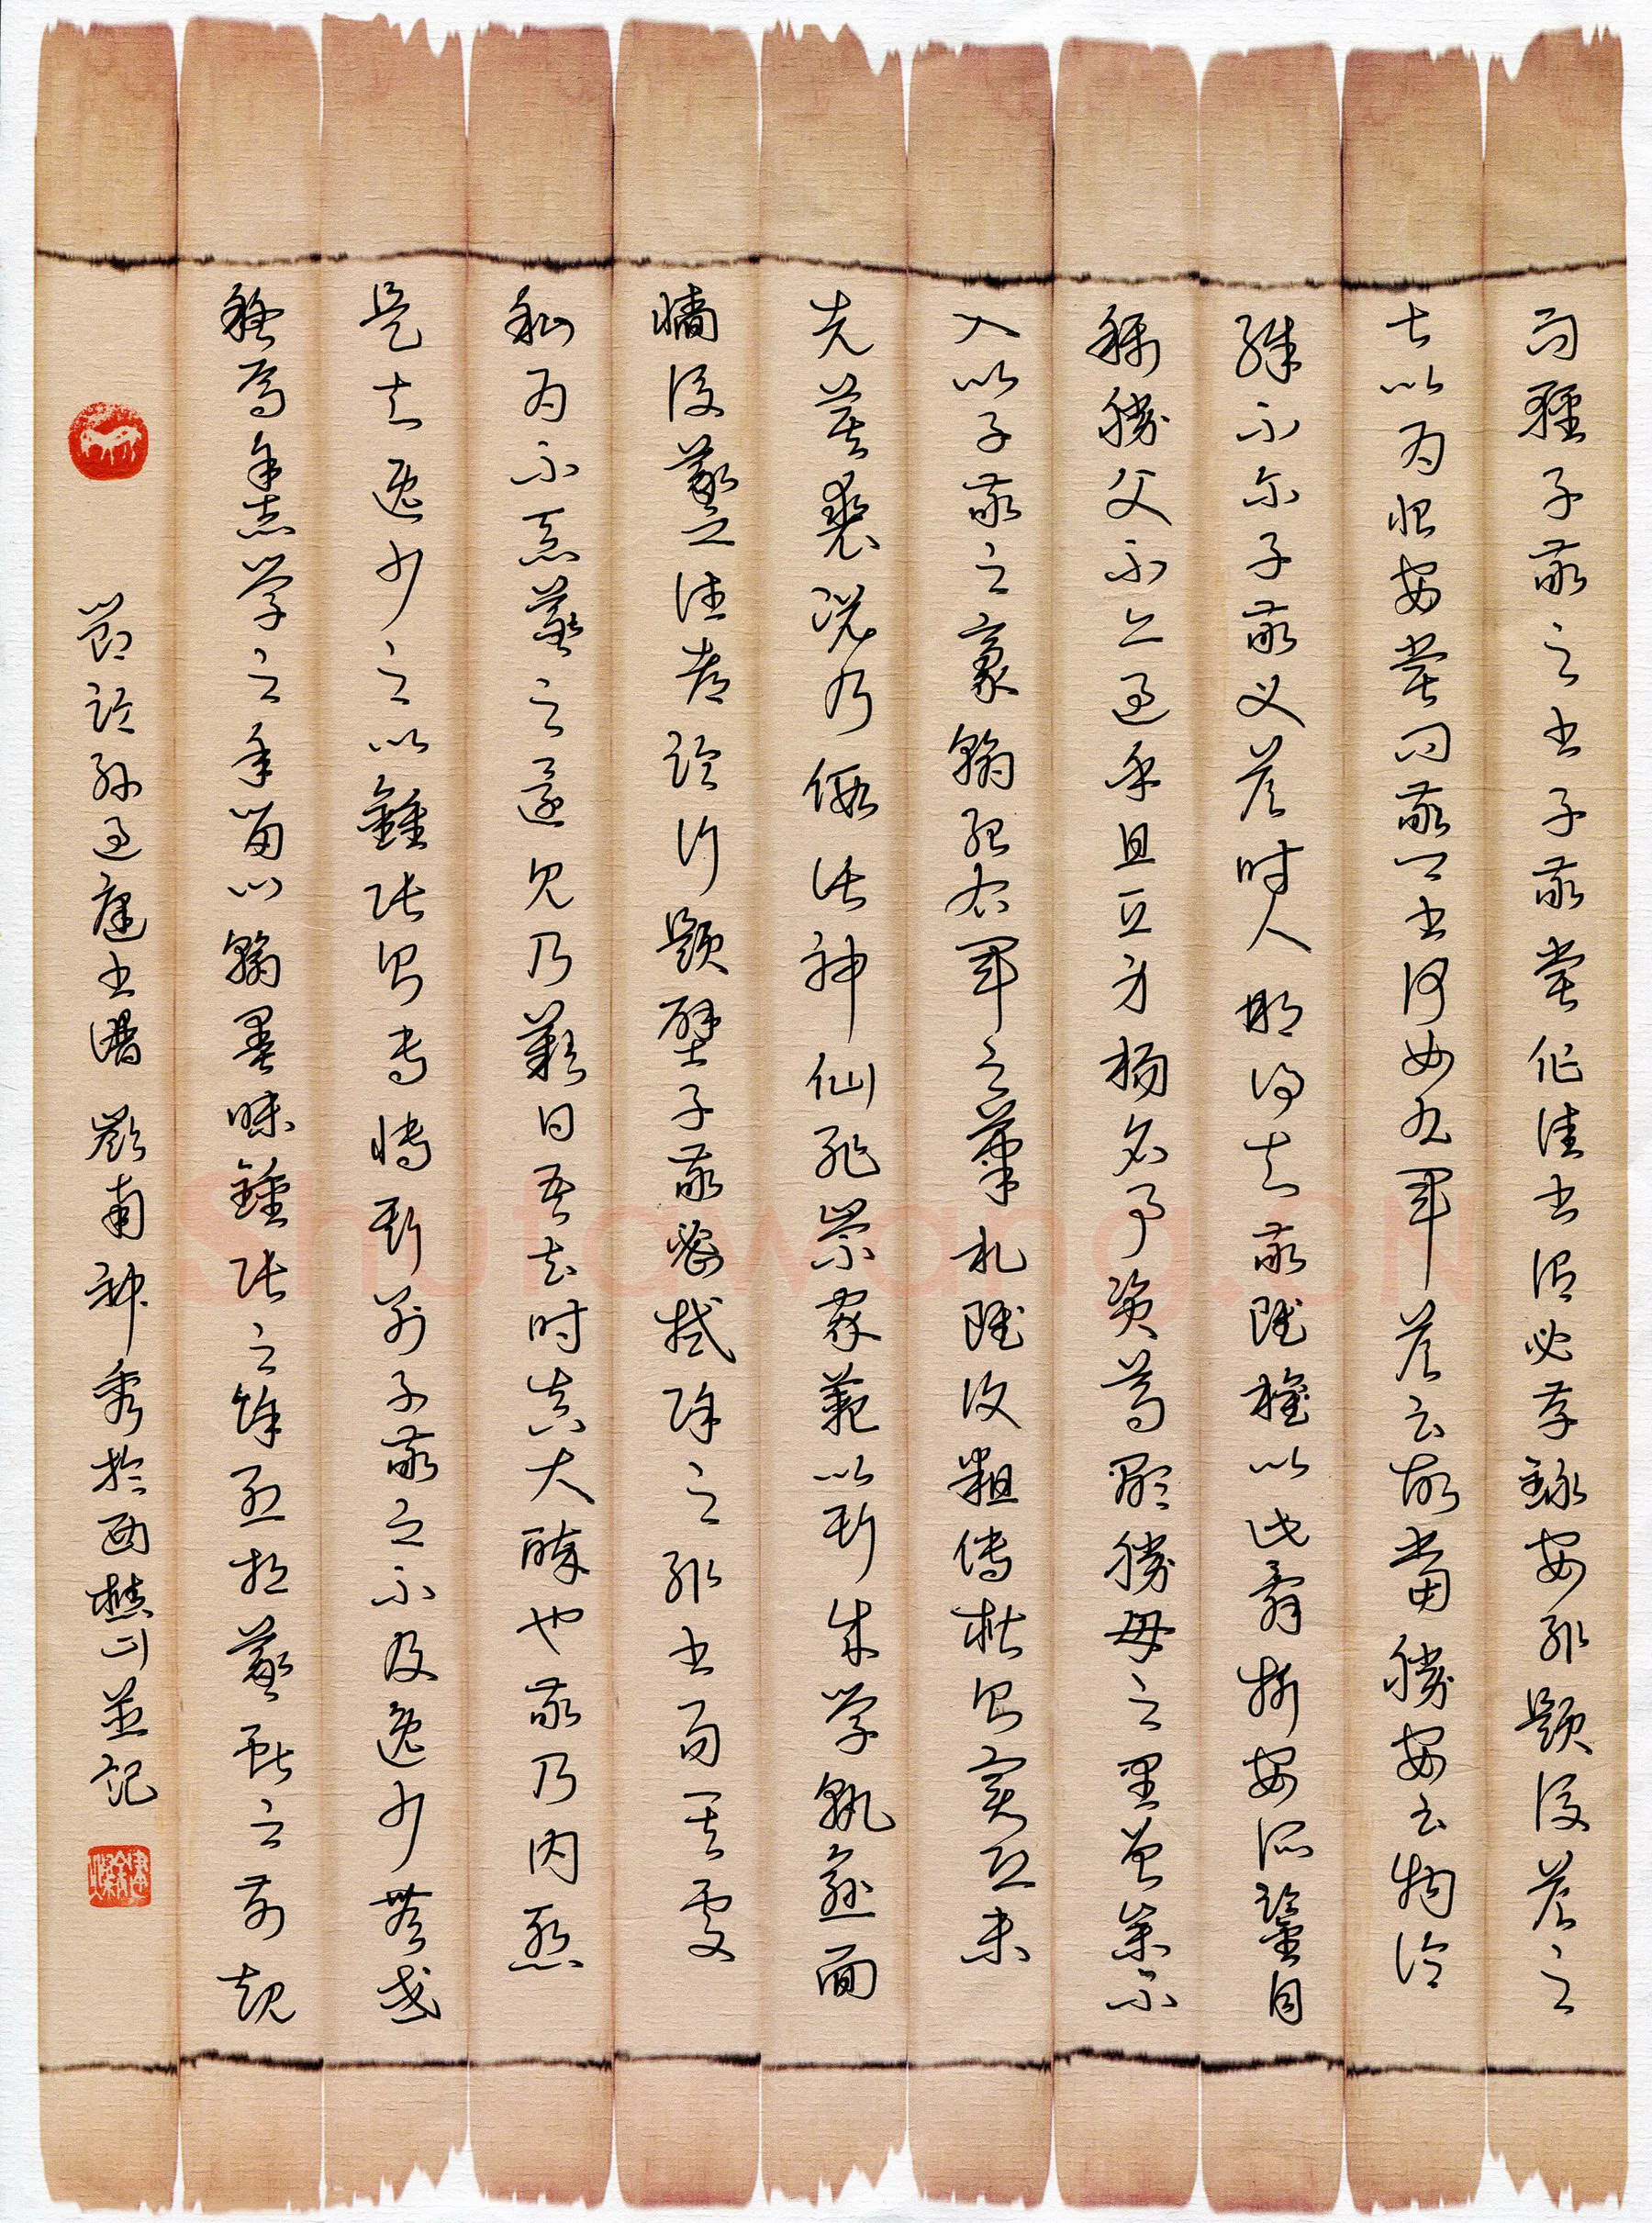 而輕子敬之書子敬嘗作佳書謂必存錄安輒題後答之
甚以為恨安嘗問敬卿書何如右軍答云故當勝安云物論
殊不爾子敬又答時人那得知敬雖權以此辭折安所鑒自
稱勝父不亦過乎且立身揚名事資尊顯勝母之里曾參不
入以子敬之豪翰紹右軍之筆札雖復粗傳楷則實恐未
克箕裘況乃假託神仙恥崇家範以斯成學孰愈面
牆後羲之往都臨行題壁子敬密拭除之輒書易其處
私為不惡羲之還見乃歎曰吾去時真大醉也敬乃內慚
是知逸少之比鍾張則專博斯別子敬之不及逸少無或
疑焉余志學之年留心翰墨味鍾張之餘烈挹羲獻之前規
節臨孫過庭書譜 南神秀於西樵山並記
Shufawang.CN